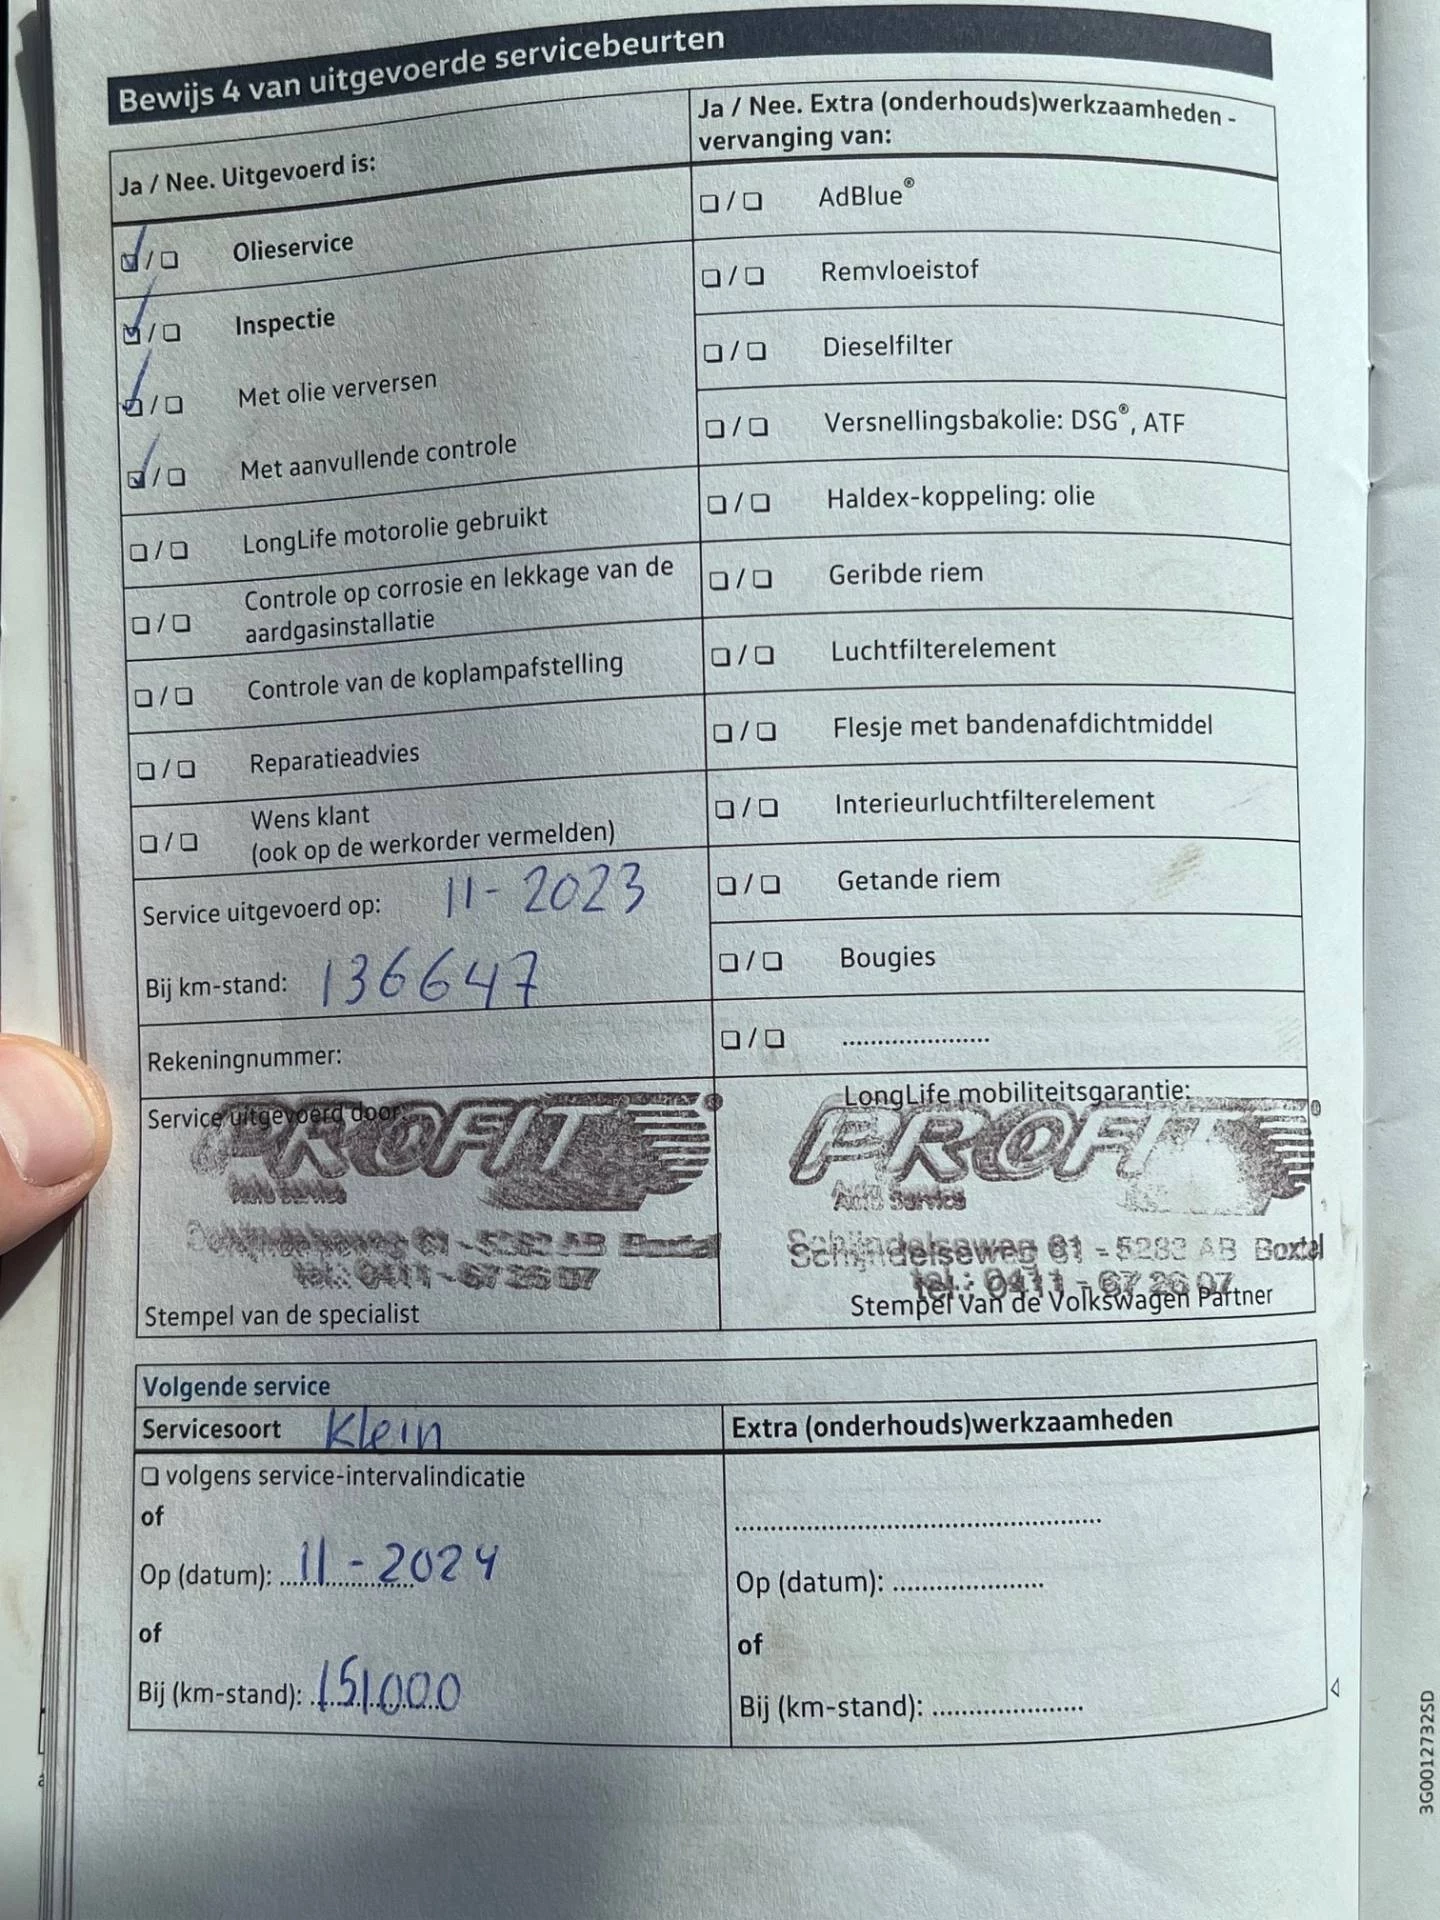 Bewijs 4 van uitgevoerde servicebeurten
Ja / Nee. Uitgevoerd is:
☑ / ☐ Olieservice
☑ / ☐ Inspectie
☑ / ☐ Met olie verversen
☑ / ☐ Met aanvullende controle
☐ / ☐ LongLife motorolie gebruikt
☐ / ☐ Controle op corrosie en lekkage van de
aardgasinstallatie
☐ / ☐ Controle van de koplampafstelling
☐ / ☐ Reparatieadvies
☐ / ☐ Wens klant
(ook op de werkorder vermelden)
Service uitgevoerd op: 11-2023
Bij km-stand: 136647
Rekeningnummer:
Service uitgevoerd door:
PROFIT®
Auto Service
Schijndelseweg 61 - 5283 AB Boxtel
tel.: 0411 - 67 26 07
Stempel van de specialist
Ja / Nee. Extra (onderhouds)werkzaamheden -
vervanging van:
☐ / ☐ AdBlue®
☐ / ☐ Remvloeistof
☐ / ☐ Dieselfilter
☐ / ☐ Versnellingsbakolie: DSG®, ATF
☐ / ☐ Haldex-koppeling: olie
☐ / ☐ Geribde riem
☐ / ☐ Luchtfilterelement
☐ / ☐ Flesje met bandenafdichtmiddel
☐ / ☐ Interieurluchtfilterelement
☐ / ☐ Getande riem
☐ / ☐ Bougies
☐ / ☐ .....................
LongLife mobiliteitsgarantie:
PROFIT®
Auto Service
Schijndelseweg 61 - 5283 AB Boxtel
tel.: 0411 - 67 26 07
Stempel van de Volkswagen Partner
Volgende service
Servicesoort Klein
☐ volgens service-intervalindicatie
of
Op (datum): 11-2024
of
Bij (km-stand): 151000
Extra (onderhouds)werkzaamheden
....................................................
Op (datum): .....................
of
Bij (km-stand): .....................
3G0012732SD